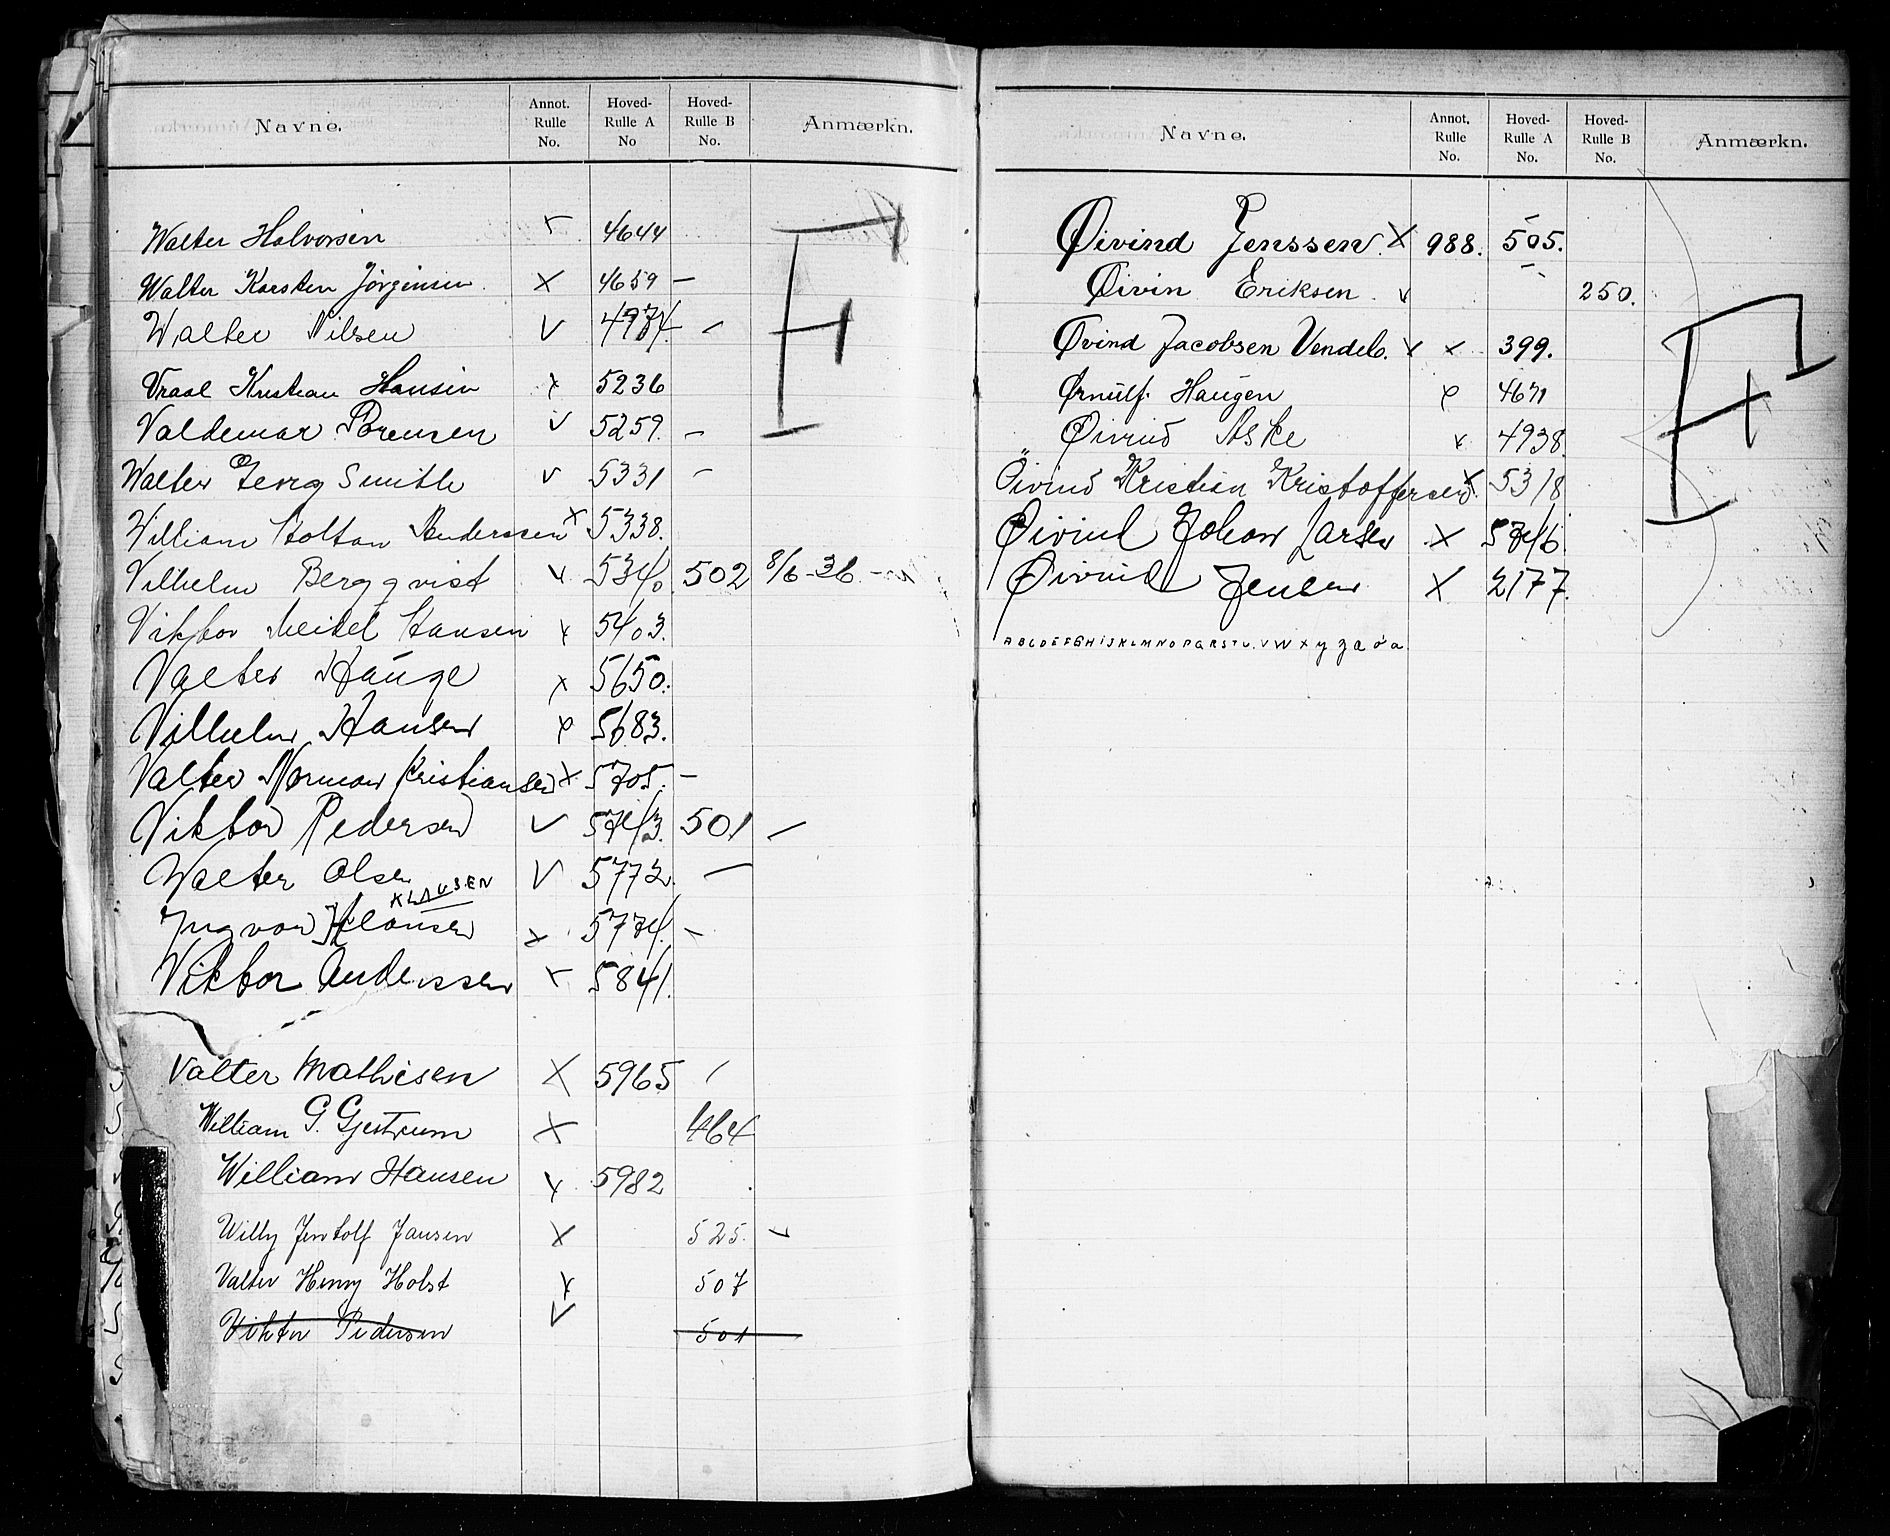 Navne. Annot. Rulle No. Hoved-Rulle A No Hoved-Rulle B No. Anmærkn.
Walter Halvorsen 4644
Walter Karsten Jörgensen. X 4659 –
Walter Nilsen V –
Kristian Hansen x 5236
Valdemar Sörensen v 5259. –
Walter Georg Smith v 5331 –
William Holtan Anderssen x 5338.
Vilhelm Bergqvist v 5340. 502 8/6-36.
Viktor Meidel Hansen x 5403.
Valter Hauge x 5650.
Vilhelm Hansen 5683.
Valter Norman Kristiansen x 5705. –
Viktor Pedersen V 5743. 501 –
Walter Olsen V 5772. –
KLAUSEN
Ingvar Klausen x 5774. –
Viktor Anderssen 5841.
Valter Mathisen X 5965
William G. Gjestrum X 464
William Hansen x 5982
Willy Jentolf Jansen X 525.
Valter Henry Holst x 507
Viktor Pedersen V 501
Navne. Annot. Rulle No. Hoved-Rulle A No. Hoved-Rulle B No. Anmærkn.
Øivind Jenssen. X 988. 505.
Øivin Eriksen. v 250.
Øvind Jacobsen Vendelb. x x 399.
Ørnulf Haugen 4671
Øivind Aske v 4938.
Öivind Kristian Kristoffersen x 5318
Øivind Johan Larsen X 5746
Øivind Jensen X 2177.